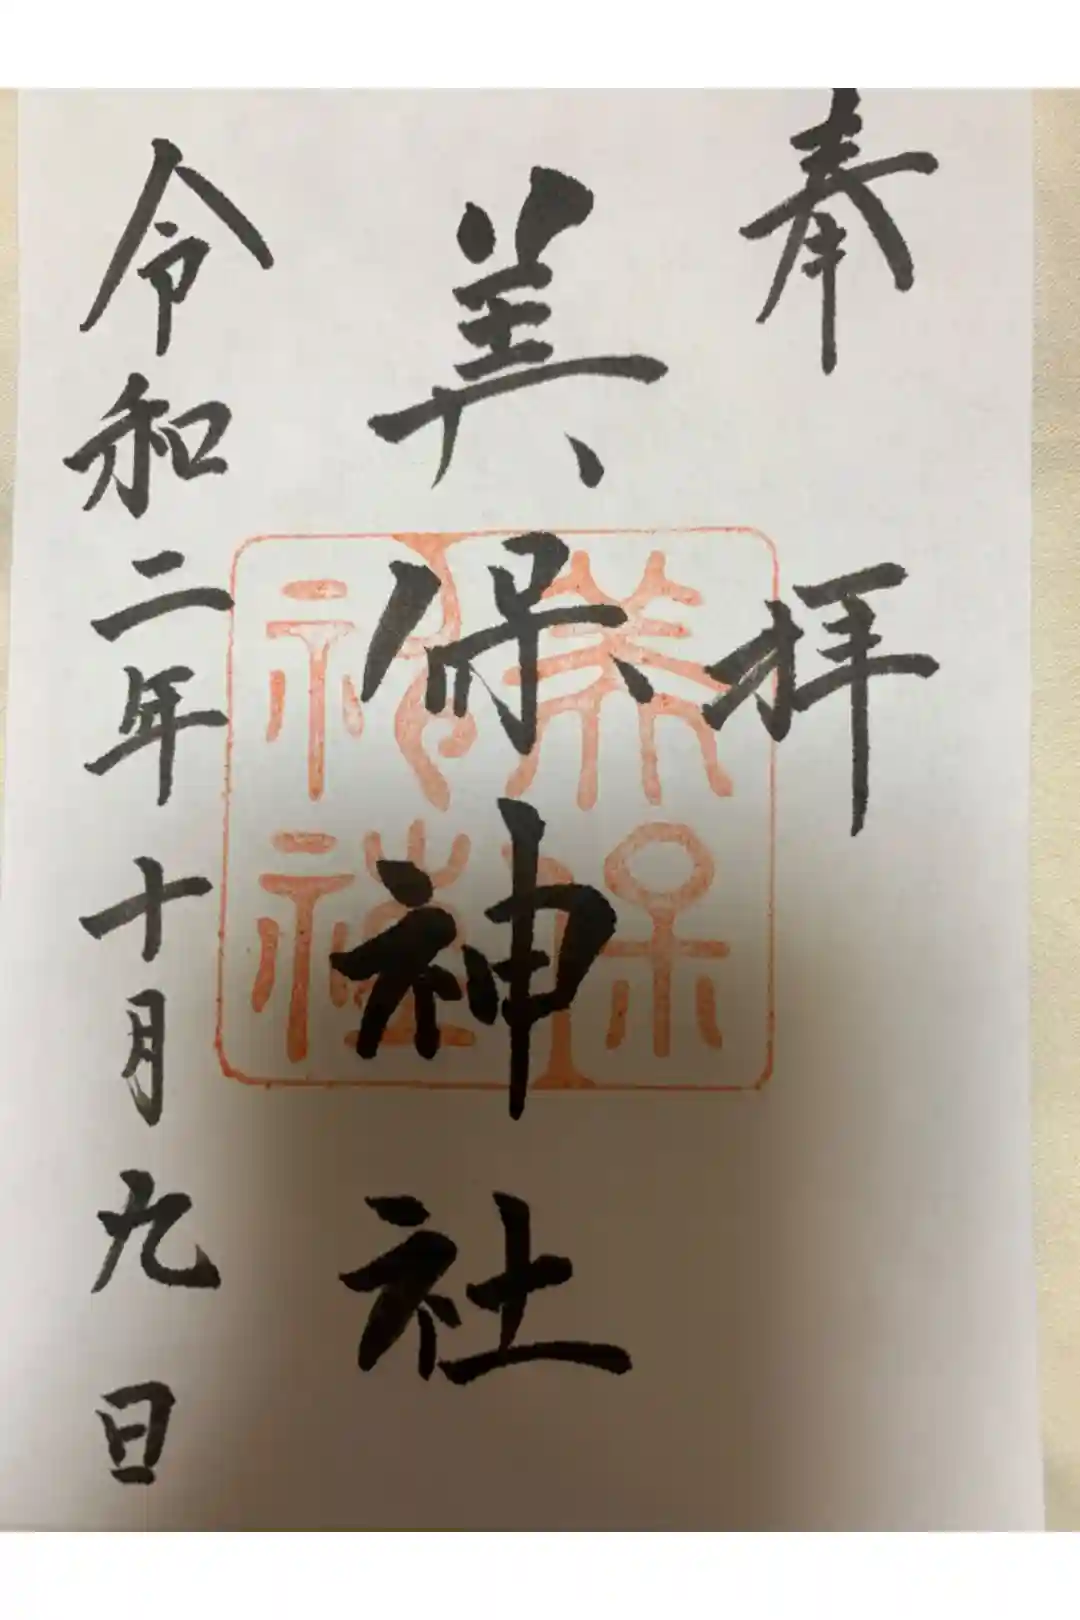 奉拝
美保神社
令和二年十月九日
美保
神社